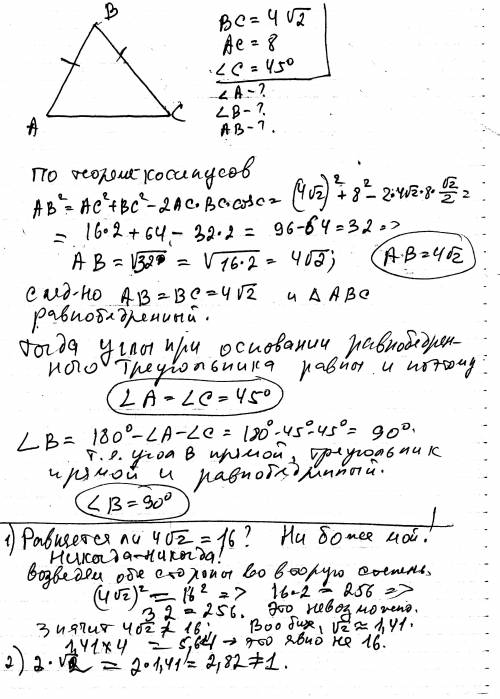 B
A
C
BC = 4√2
AC = 8
∠C = 45°
∠A - ?
∠B - ?
AB - ?
По теореме косинусов
AB² = AC² + BC² - 2AC·BC·cosC = (4√2)² + 8² - 2·4√2·8·√2/2 =
= 16·2 + 64 - 32·2 = 96 - 64 = 32 =>
AB = √32 = √16·2 = 4√2; AB = 4√2
след-но AB = BC = 4√2 и △ABC
равнобедренный.
Тогда углы при основании равнобедрен-
ного треугольника равны и потому
∠A = ∠C = 45°
∠B = 180° - ∠A - ∠C = 180° - 45° - 45° = 90°.
т.е. угол B прямой, треугольник
прямой и равнобедренный.
∠B = 90°
1) Равняется ли 4√2 = 16? Ни боже мой!
Никогда-никогда!
Возведем обе стороны во вторую степень.
(4√2)² = 16² => 16·2 = 256 =>
32 = 256. Это невозможно.
Значит 4√2 ≠ 16. Вообще, √2 ≈ 1,41.
1,41×4 = 5,64 → это явно не 16.
2) 2·√2 = 2·1,41 = 2,82 ≠ 1.